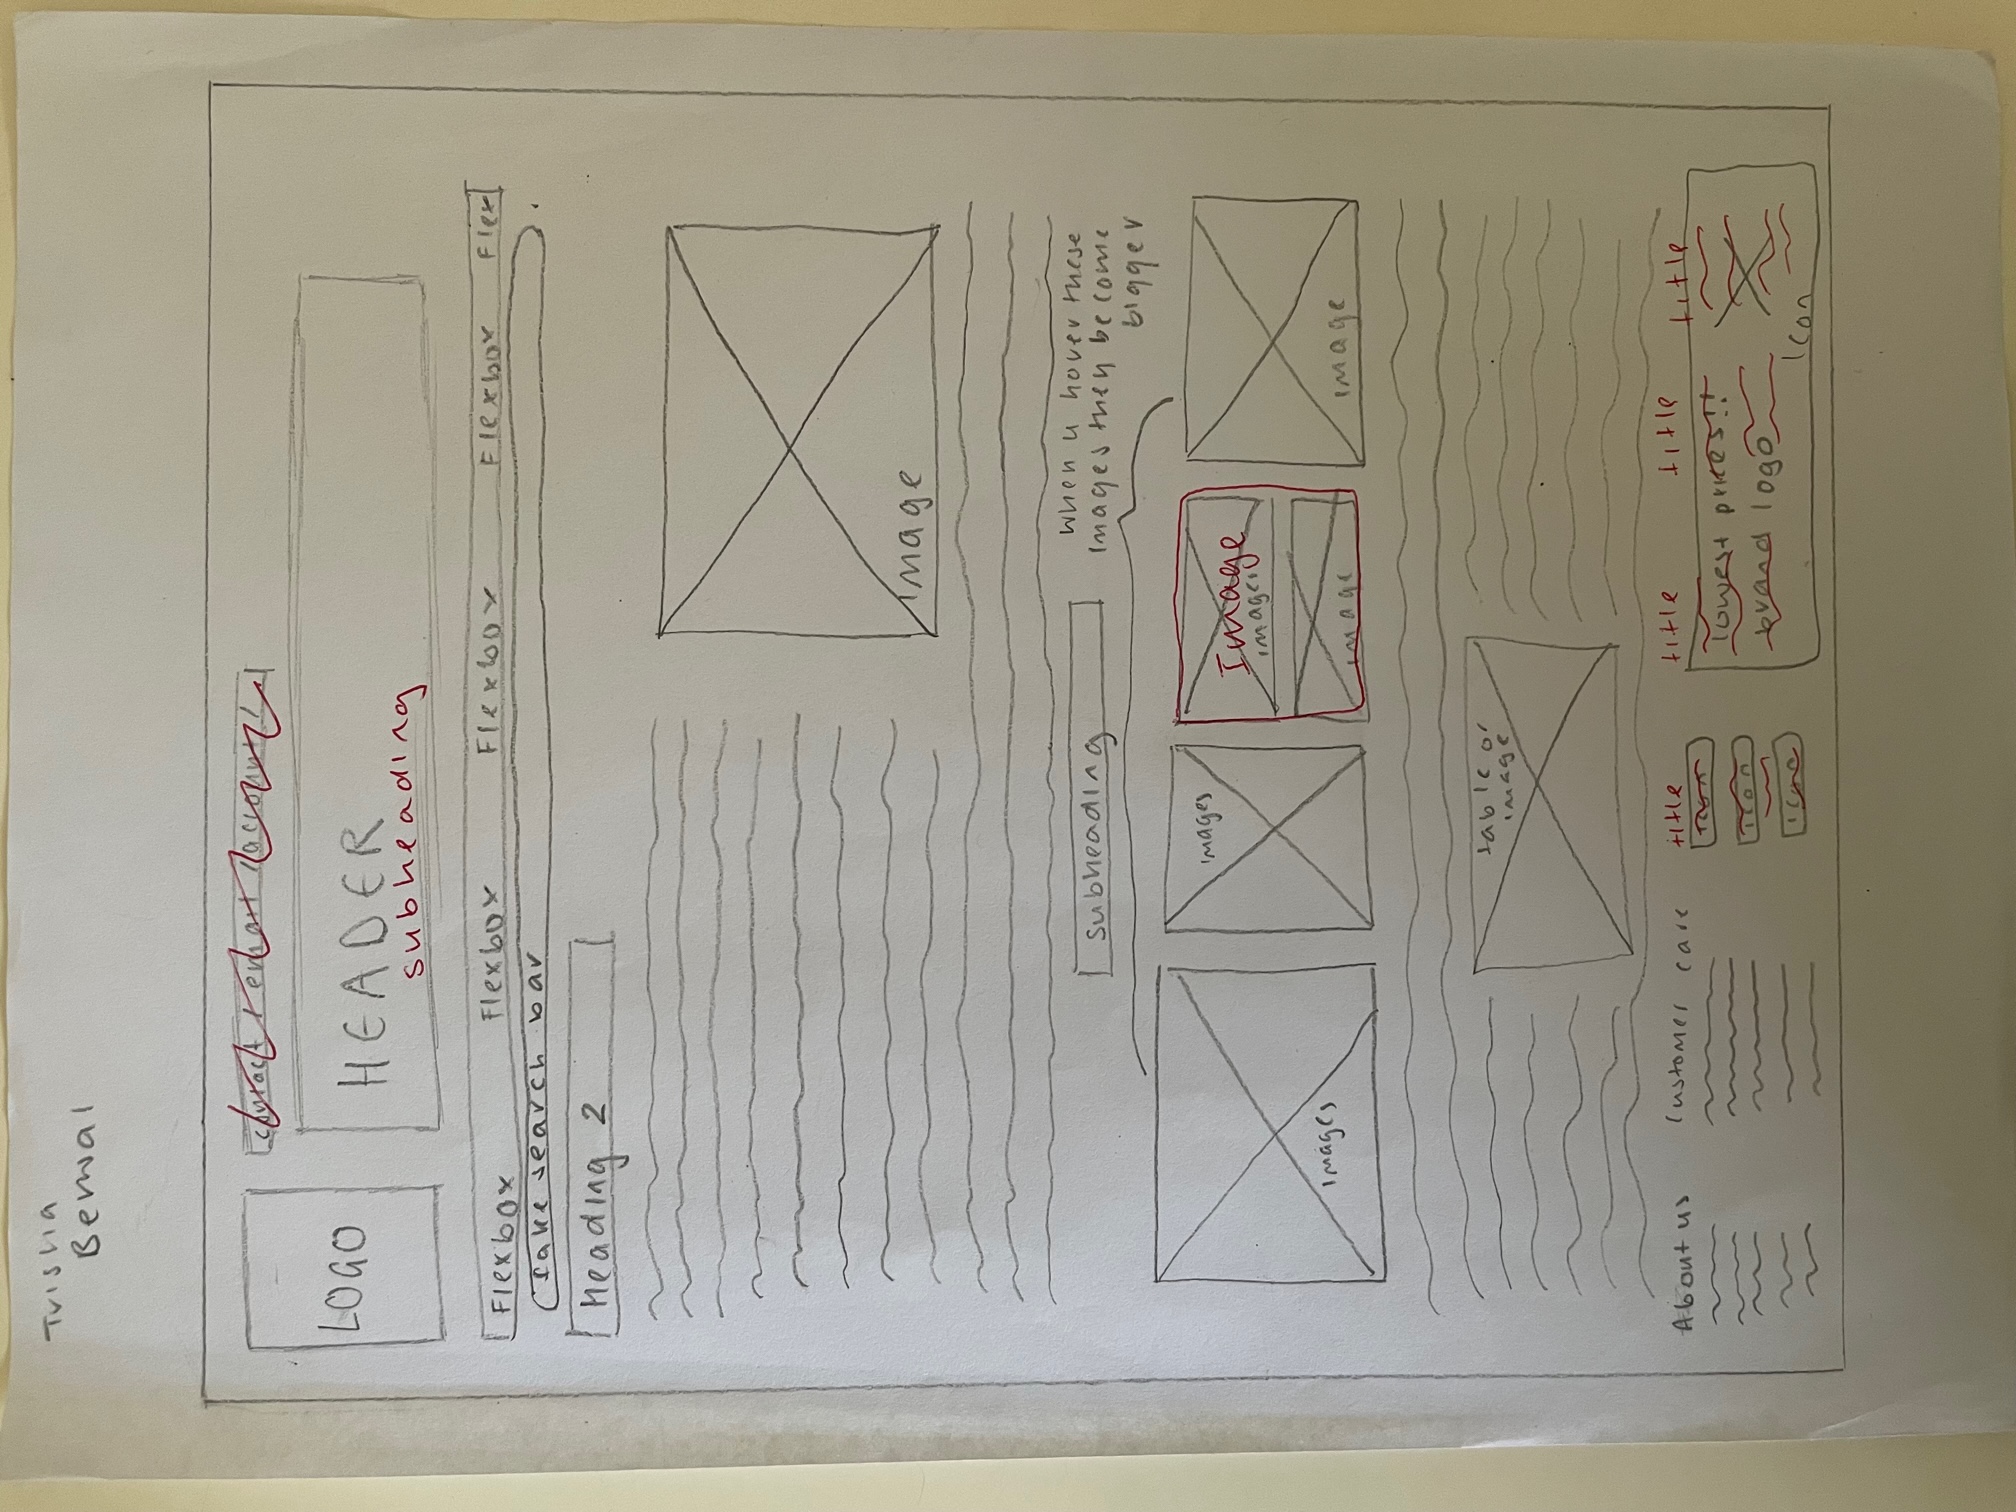 Trisha
Berwal
contact / email / account /
LOGO
HEADER
subheading
Flexbox Flexbox Flexbox Flexbox Flex
fake search bar
Heading 2
image
subheading
when u hover these
images they become
bigger
images
images
Image
images
image
image
table or
image
About us Customer care title title title title
icon
icon
icon
lowest prices!!
brand logo
Icon